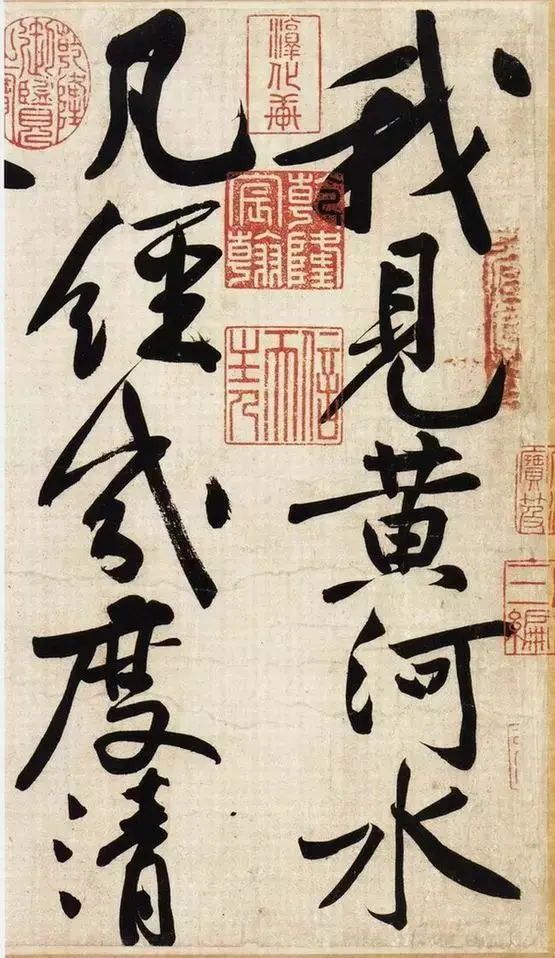 寶笈
三編
我見黃河水
淳化軒
乾隆宸翰
信天主人
凡經幾度清
乾隆御覽之寶